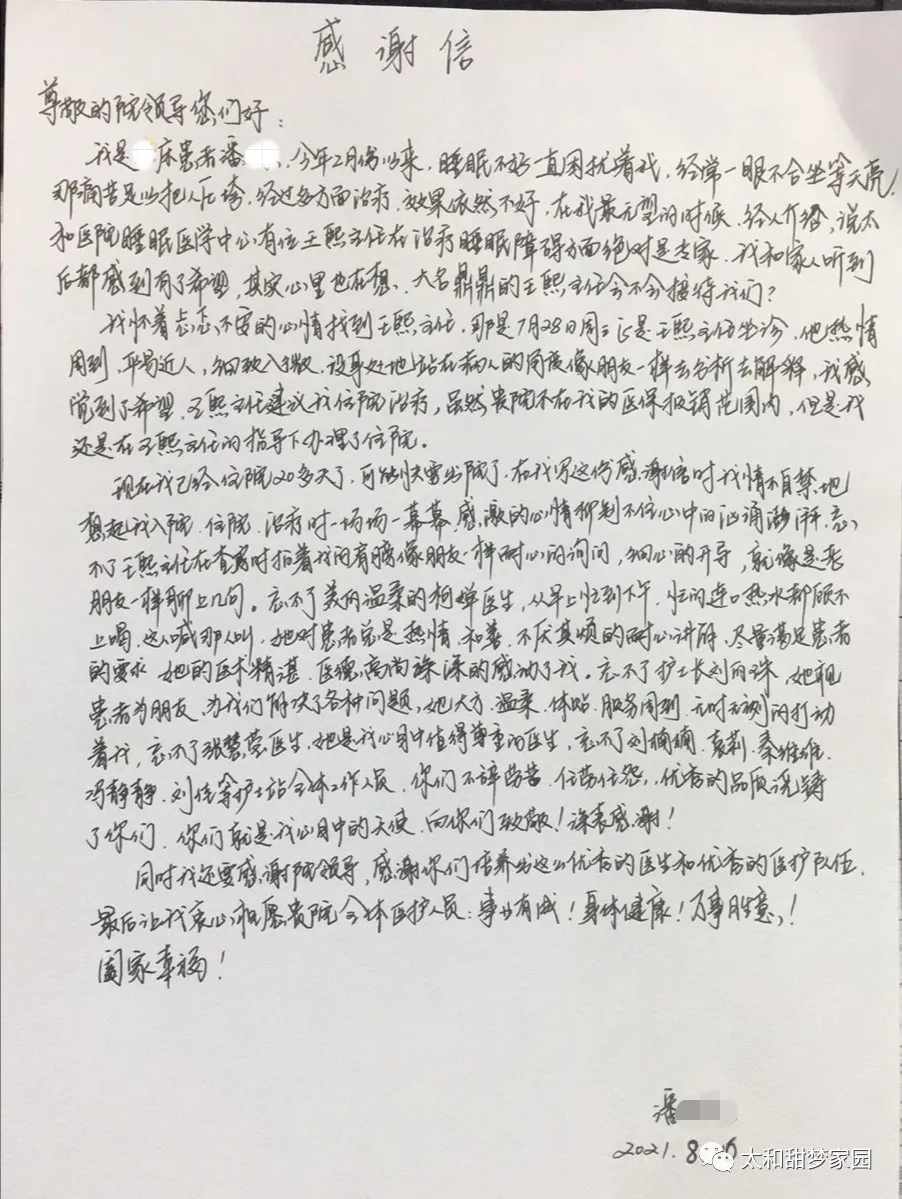 感谢信
尊敬的院领导您们好：
我是 床患者潘 ，今年2月份以来，睡眠不好一直困扰着我，经常一眼不合坐等天亮，
那痛苦足以把人压垮，经过多方面治疗，效果依然不好，在我最无望的时候，经人介绍，说太
和医院睡眠医学中心有位王熙主任在治疗睡眠障碍方面绝对是专家。我和家人听到
后都感到有了希望，其实心里也在想，大名鼎鼎的王熙主任会不会接待我们？
我怀着忐忑不安的心情找到王熙主任，那是7月28日周三正是王熙主任坐诊，他热情
周到，平易近人，细致入微，设身处地站在病人的角度像朋友一样去分析去解释，我感
觉到了希望。王熙主任建议我住院治疗，虽然贵院不在我的医保报销范围内，但是我
还是在王熙主任的指导下办理了住院。
现在我已经住院20多天了，可能快要出院了，在我写这份感谢信时我情不自禁地
想起我入院、住院、治疗时一场场一幕幕，感激的心情抑制不住心中的汹涌澎湃，忘
不了王熙主任在查房时拍着我的肩膀像朋友一样耐心的询问，细心的开导，就像是老
朋友一样聊上几句。忘不了美丽温柔的柯婵医生，从早上忙到下午，忙的连口热水都顾不
上喝，这人喊那人叫，她对患者总是热情、和善、不厌其烦的耐心讲解，尽量满足患者
的要求，她的医术精湛，医德高尚深深的感动了我。忘不了护士长刘丽珠，她视
患者为朋友，为我们解决了各种问题，她大方、温柔、体贴、服务周到，无时无刻的打动
着我，忘不了张慧莹医生，她是我心目中值得尊重的医生，忘不了刘楠楠、袁莉、秦维维、
冯静静、刘佳等护士站全体工作人员，你们不辞劳苦、任劳任怨，优秀的品质诠释
了你们，你们就是我心目中的天使，向你们致敬！深表感谢！
同时我还要感谢院领导，感谢你们培养出这么优秀的医生和优秀的医护队伍，
最后让我衷心祝愿贵院全体医护人员：事业有成！身体健康！万事胜意！
阖家幸福！
潘
2021.8. 6
太和甜梦家园